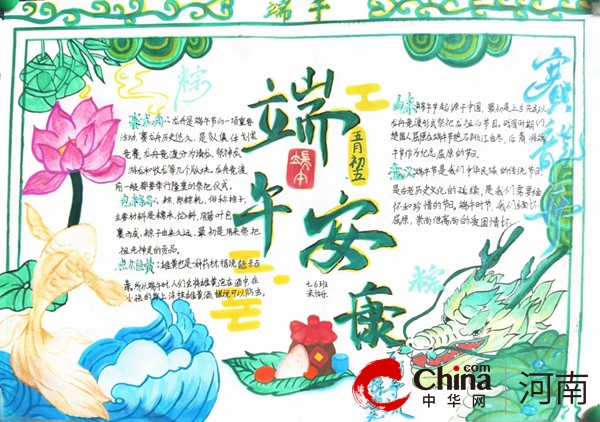 端午
粽
赛龙舟：龙舟是端午节的一项重要
活动，赛龙舟历史悠久，是
竞赛，龙舟竞渡分为请龙、祭神反
游龙和收龙等几个版块，龙舟竞渡
前一般都要举行隆重的祭祀仪式。
包粽子：粽，即粽籺，俗称粽子，
主要材料是糯米、馅料，用箬叶包
裹而成，粽子由来久远，最初是用来祭祀
祖先神灵的贡品。
点雄黄：雄黄也是一种药材，据说能杀百
毒，所以端午时人们会将雄黄泡在酒中在
小孩的额上涂抹雄黄酒，据说可以防虫。
端午安康
端午
五月初五
由来：端午节起源于中国，最初是上古先民以
龙舟竞渡形式祭祀龙祖的节日。战国时期的
楚国人屈原在端午节抱石跳汨江自尽，后亦将端
午节作为纪念屈原的节日。
意义：端午节是我们中华民族的传统节日，
是古老历史文化的延续，是我们需要缅
怀和珍惜的节日，端午时节，我们缅怀
屈原，崇尚他高尚的爱国情怀。
赛龙舟
粽
七6班
China.com
中华网
河南